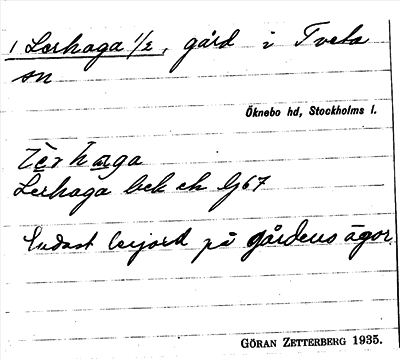 1 Lerhaga 1/2, gård i Tveta
sn
Öknebo hd, Stockholms l.
Lerhaga bek ek Gj67
Endast lerjord på gårdens ägor.
GÖRAN ZETTERBERG 1935.